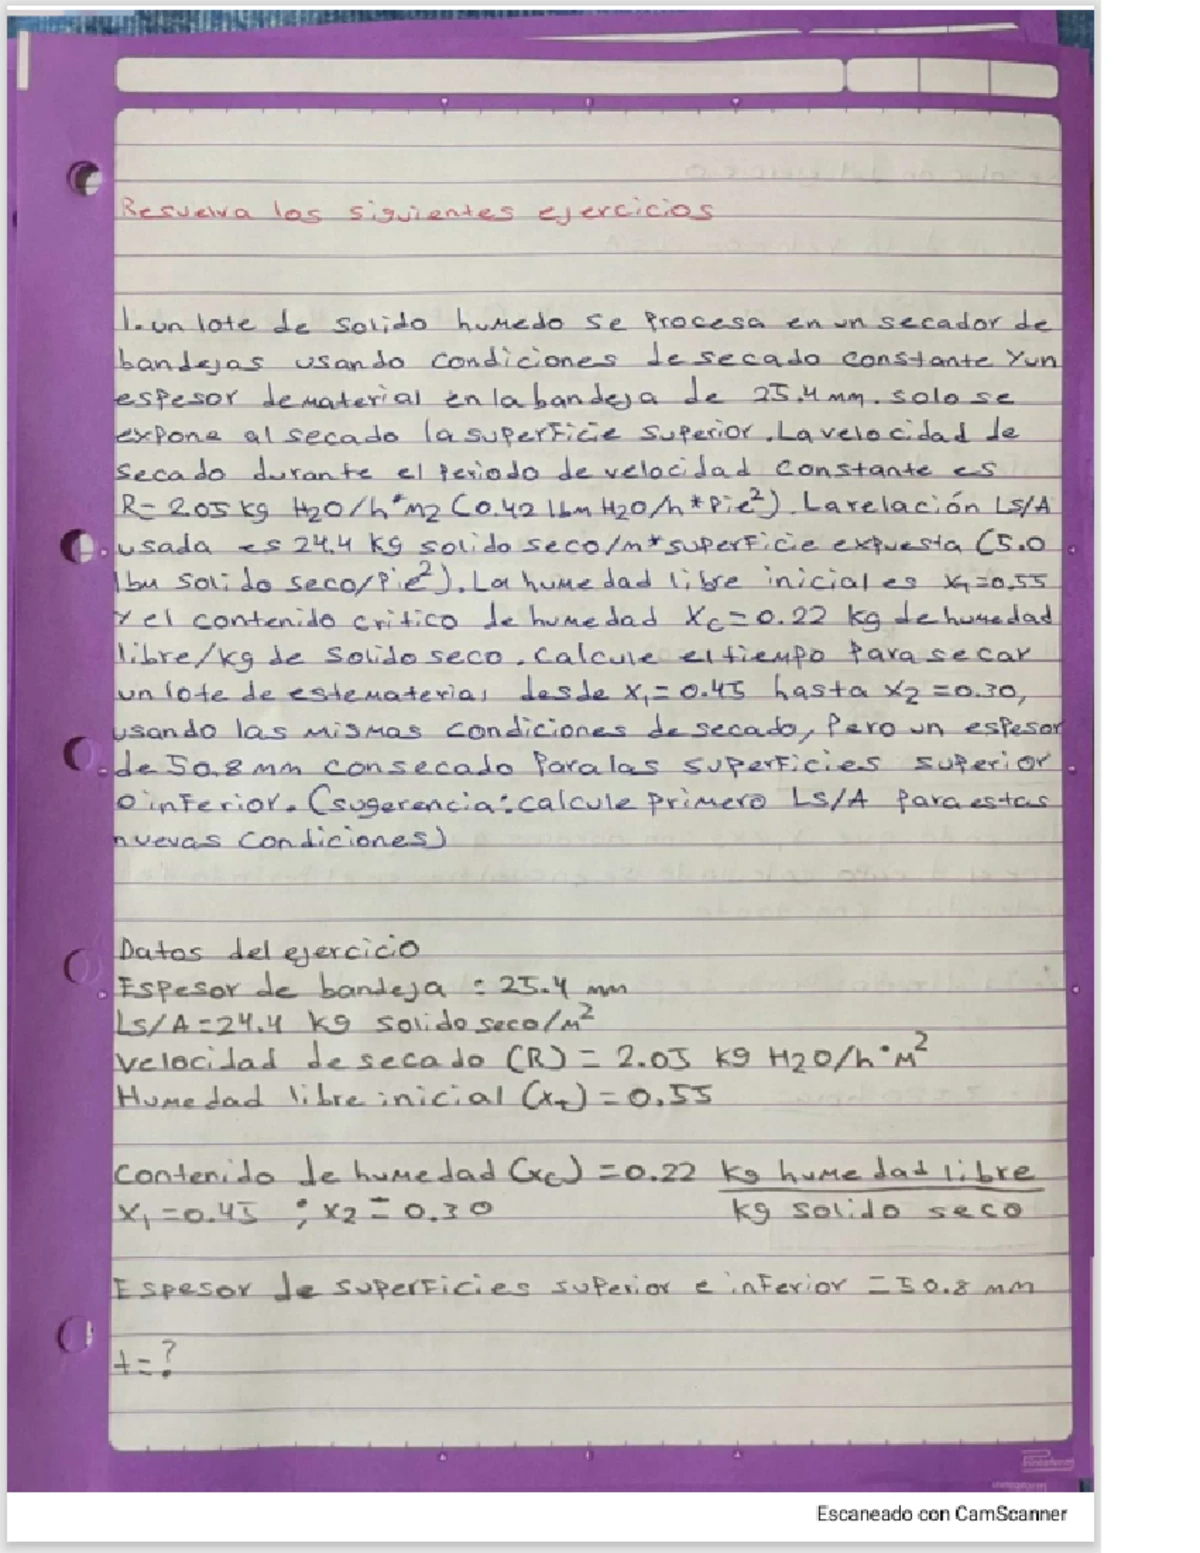 Resuelva los siguientes ejercicios
1.-un lote de solido humedo se Procesa en un secador de
bandejas usando condiciones de secado constante Y un
espesor de material en la bandeja de 25.4 mm. solo se
expone al secado la superficie superior. La velocidad de
secado durante el Periodo de velocidad constante es
R= 2.05 kg H2O/h*m2 (0.42 lbm H2O/h*Pie²). La relación Ls/A
usada es 24.4 kg solido seco/m*superficie expuesta (5.0
lbm solido seco/Pie²). La humedad libre inicial es X1=0.55
Y el contenido critico de humedad Xc=0.22 kg de humedad
libre/kg de solido seco. Calcule el tiempo Para secar
un lote de este material desde X1=0.45 hasta X2=0.30,
usando las mismas condiciones de secado, Pero un espesor
de 50.8 mm con secado Para las superficies superior
o inferior. (sugerencia: calcule primero Ls/A Para estas
nuevas condiciones)
Datos del ejercicio
Espesor de bandeja : 25.4 mm
Ls/A=24.4 kg solido seco/m²
velocidad de secado (R) = 2.05 kg H2O/h*m²
Humedad libre inicial (x1) = 0.55
contenido de humedad (xc) = 0.22 kg humedad libre
kg solido seco
x1=0.45 ; x2=0.30
Espesor de superficies superior e inferior = 50.8 mm
t=?
Escaneado con CamScanner